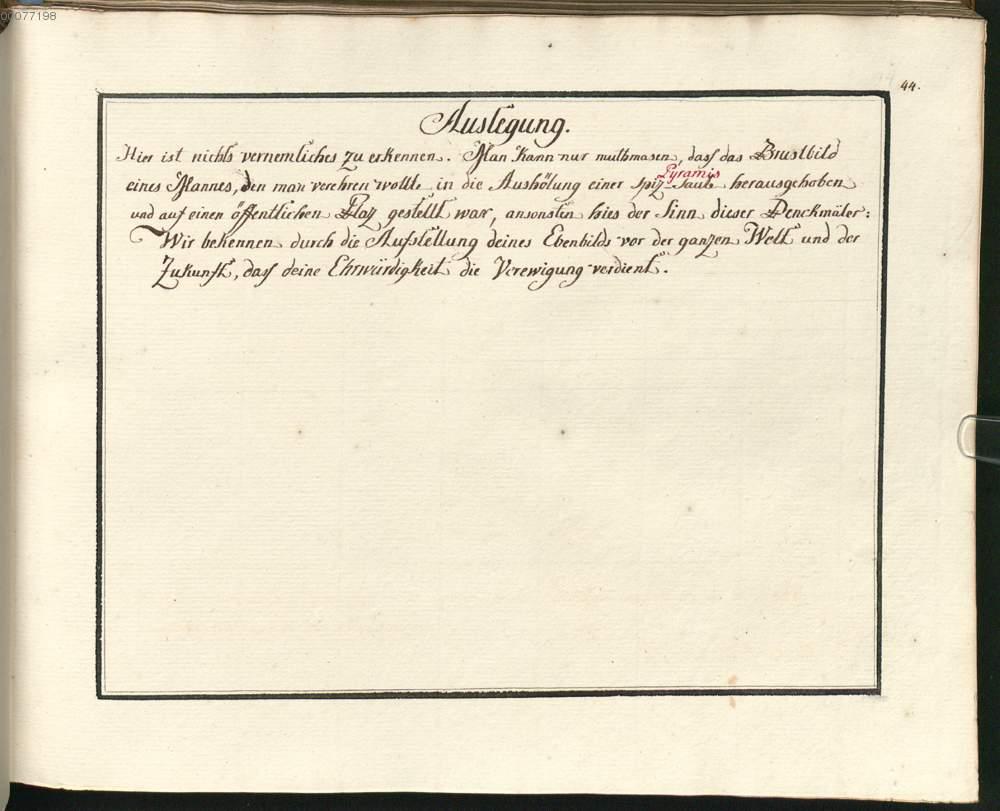 00077198
44.
Auslegung.
Hier ist nichts vernemliches zu erkennen. Man kann nur muthmasen, dass das Brustbild
Pyramis
eines Mannes, den man verehren wollte in die Aushölung einer spiz-Saule herausgehoben
und auf einen öffentlichen Plaz gestellt war, ansonsten hies der Sinn dieser Denckmäler:
Wir bekennen durch die Aufstellung deines Ebenbilds vor der ganzen Welt und der
Zukunft, dass deine Ehrwürdigkeit die Verewigung verdient.